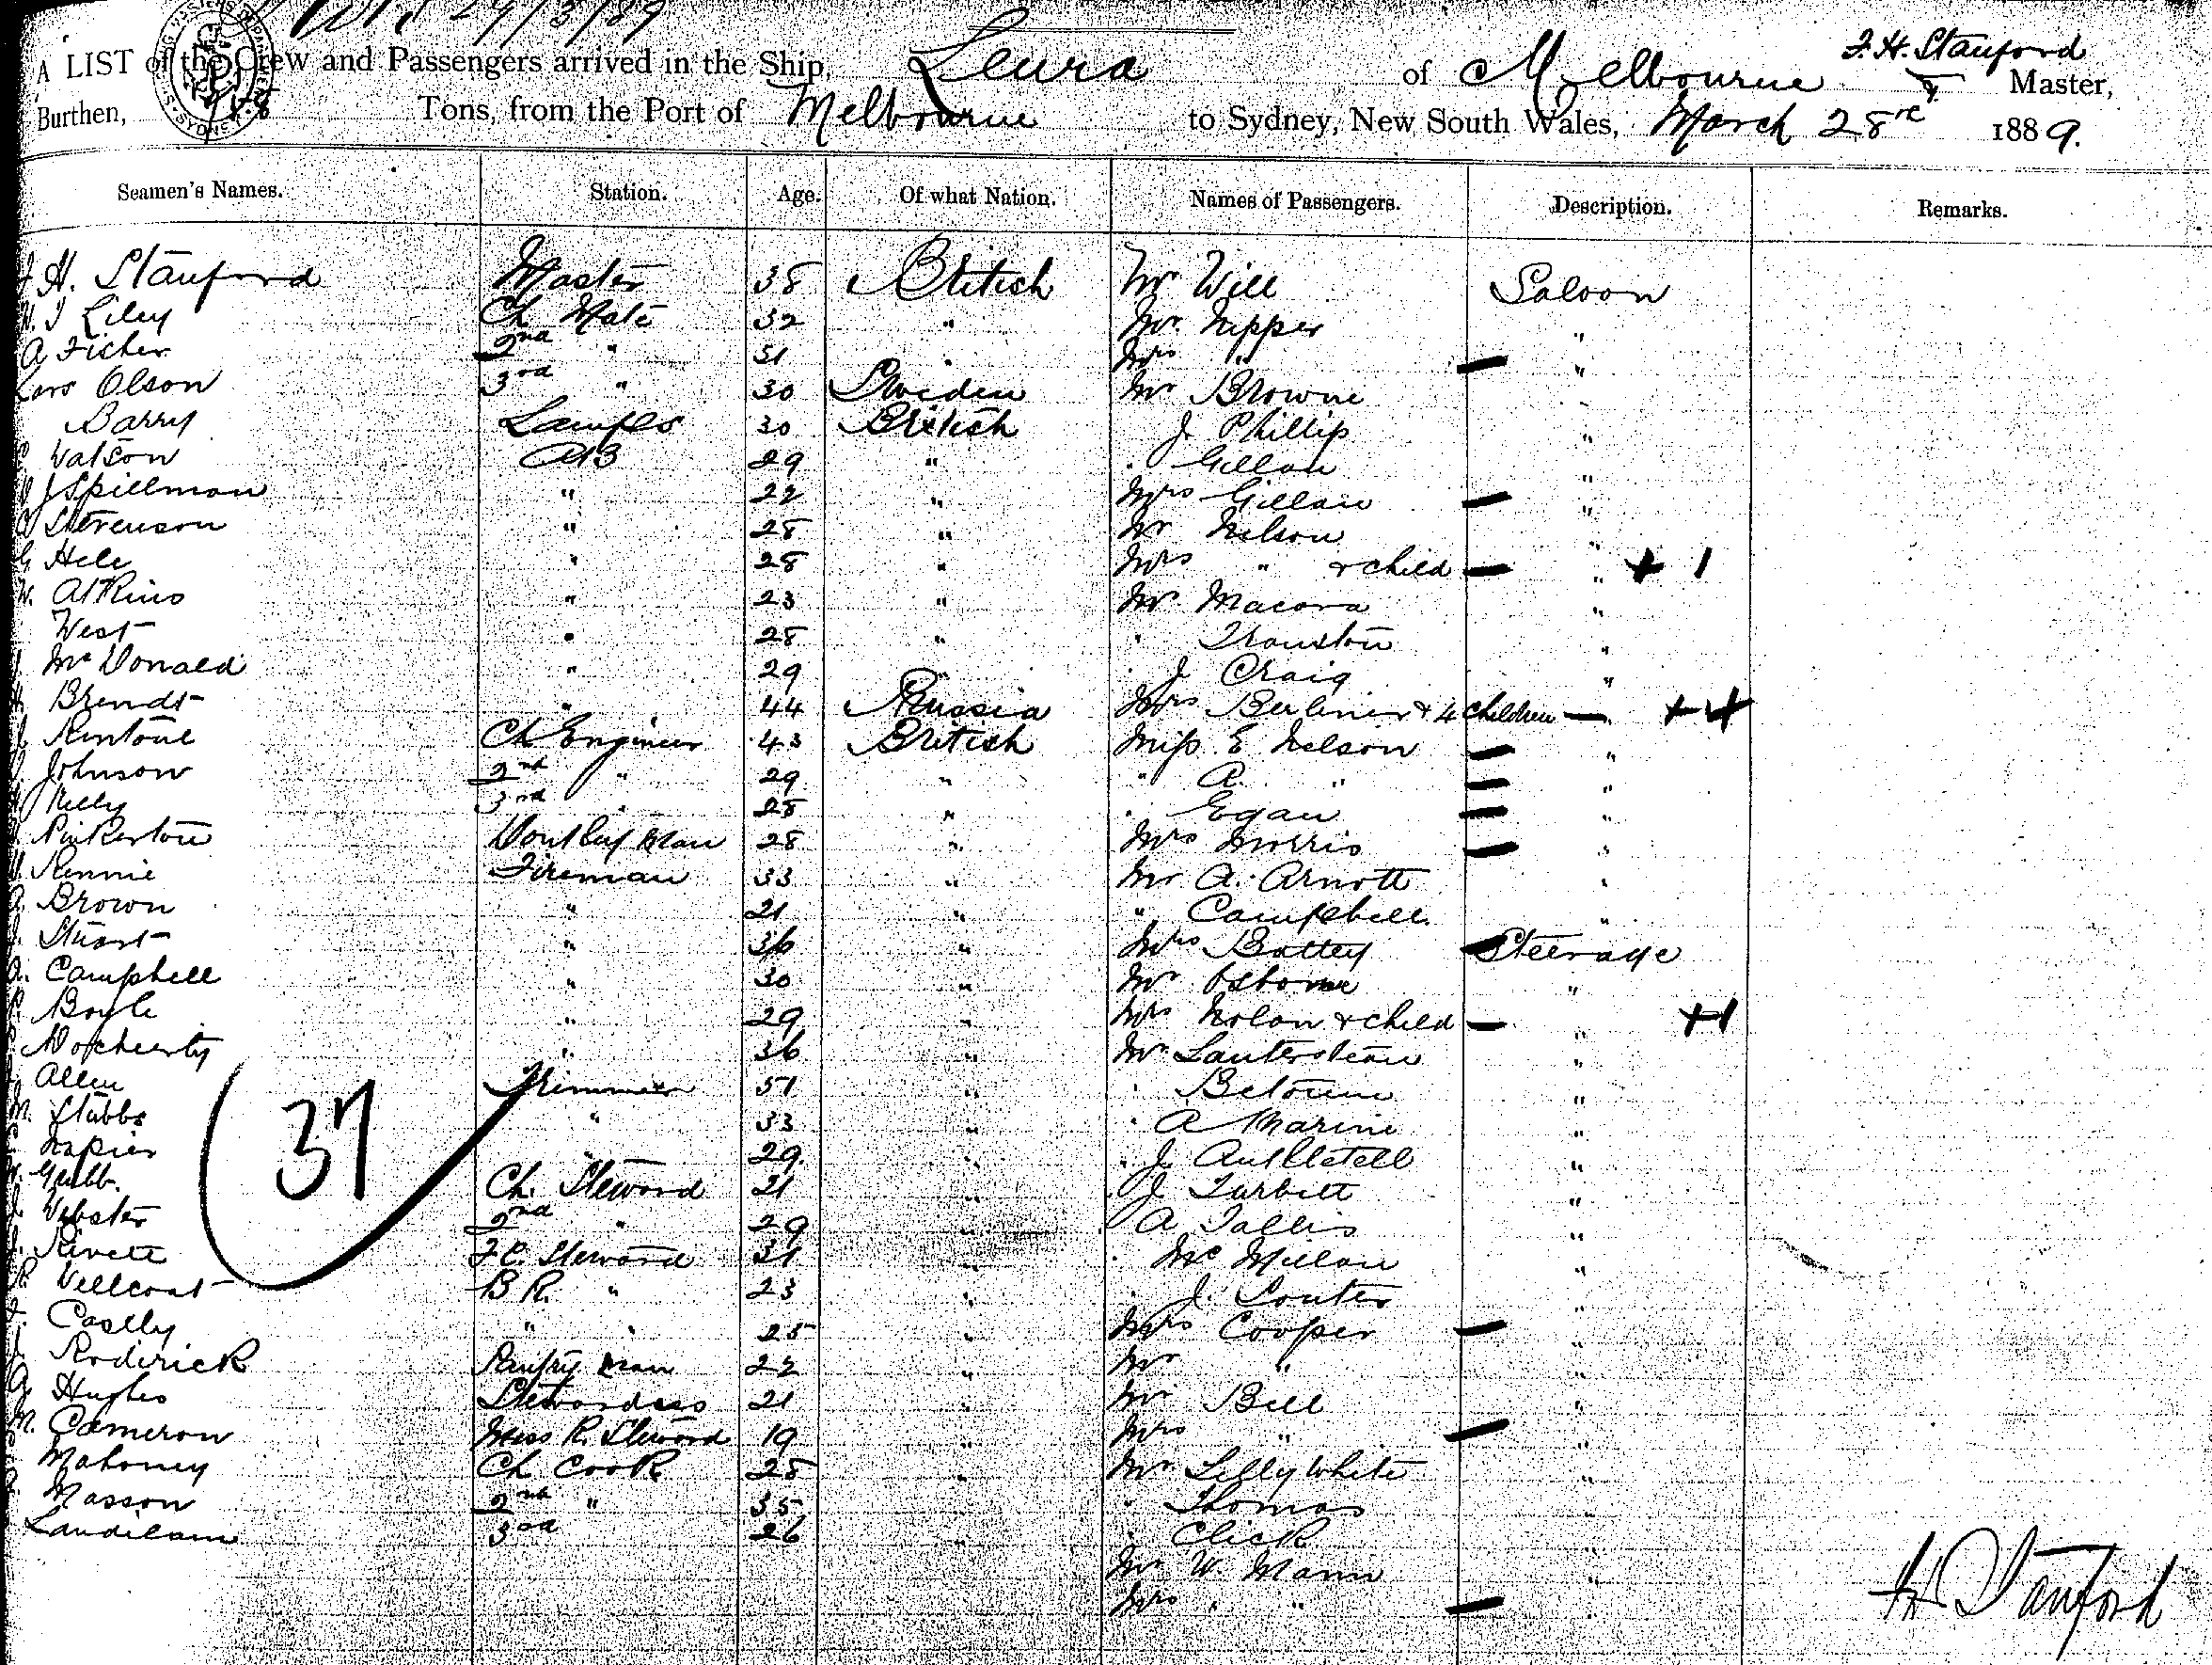 29/3/89
A LIST of the Crew and Passengers arrived in the Ship, Leura of Melbourne F. H. Stanford Master,
Burthen, Tons, from the Port of Melbourne to Sydney, New South Wales, March 28 1889.
Seamen's Names. Station. Age. Of what Nation. Names of Passengers. Description. Remarks.
H. Stanford Master 38 British Mr Will Saloon
Liley Ch Mate 32 " Mr. Nipper "
A Ficher 2nd " 31 Mrs " "
Lars Olson 3rd " 30 Sweden Mr Browne
Barry Lamps 30 British J Phillip "
Watson AB 29 " Gillan "
J Spillman " 22 " Mrs Gillan "
Stevenson " 28 " Mr Nelson "
G Hele " 28 " Mrs " & child " + 1
W. Atkins " 23 " Mr Macora "
West " 28 " "
McDonald " 29 J Craig "
Brendt " 44 Russia Mrs Berliner & 4 children + 4
Rintoul Ch Engineer 43 British Miss E Nelson "
Johnson 2nd " 29 " " A. " "
Kelly 3rd " 28 " Egan "
Pinkerton Donkey Man 28 " Mrs Morris "
Rennie Fireman 33 " Mr A. Arnott "
Brown " 21 " " Campbell "
Stuart " 36 " Mrs Battey Steerage
Campbell " 30 " Mr Osborne "
Boyle " 29 " Mrs Nolan & child " +1
Docherty " 36 " Mr Lauterstein "
Allen Trimmer 51 " "
M. Stubbs " 33 " A Marine "
Napier " 29 " J "
Grubb. Ch. Steward 21 " J Turbitt "
Webster 2nd " 29 A Tallis "
Rivett F.C. Steward 31 " McMillan "
Vellcoat B R. " 23 " J. Souter
Castly " " 25 " Mrs Cooper "
Roderick Pantry Man 22 " Mr "
Hughes Stewardess 21 " Mr Bill "
M. Cameron Mess R. Steward 19 " Mrs " "
Mahoney Ch Cook 28 " Mr Lillywhite "
Masson 2nd " 35 " Thomas "
3rd 26 " Click "
Mr W. Mann "
Mrs " "
37
H Stanford